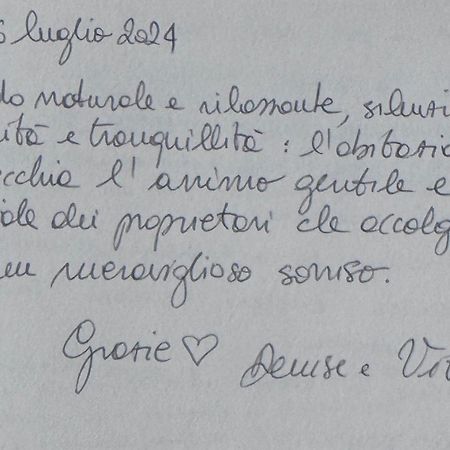 6 luglio 2024
do naturale e rilassante, silenzi
ità e tranquillità : l'abitazio
cchia l'animo gentile e
iale dei proprietari che accolg
un meraviglioso sorriso.
Grazie ♡ Denise e Vit